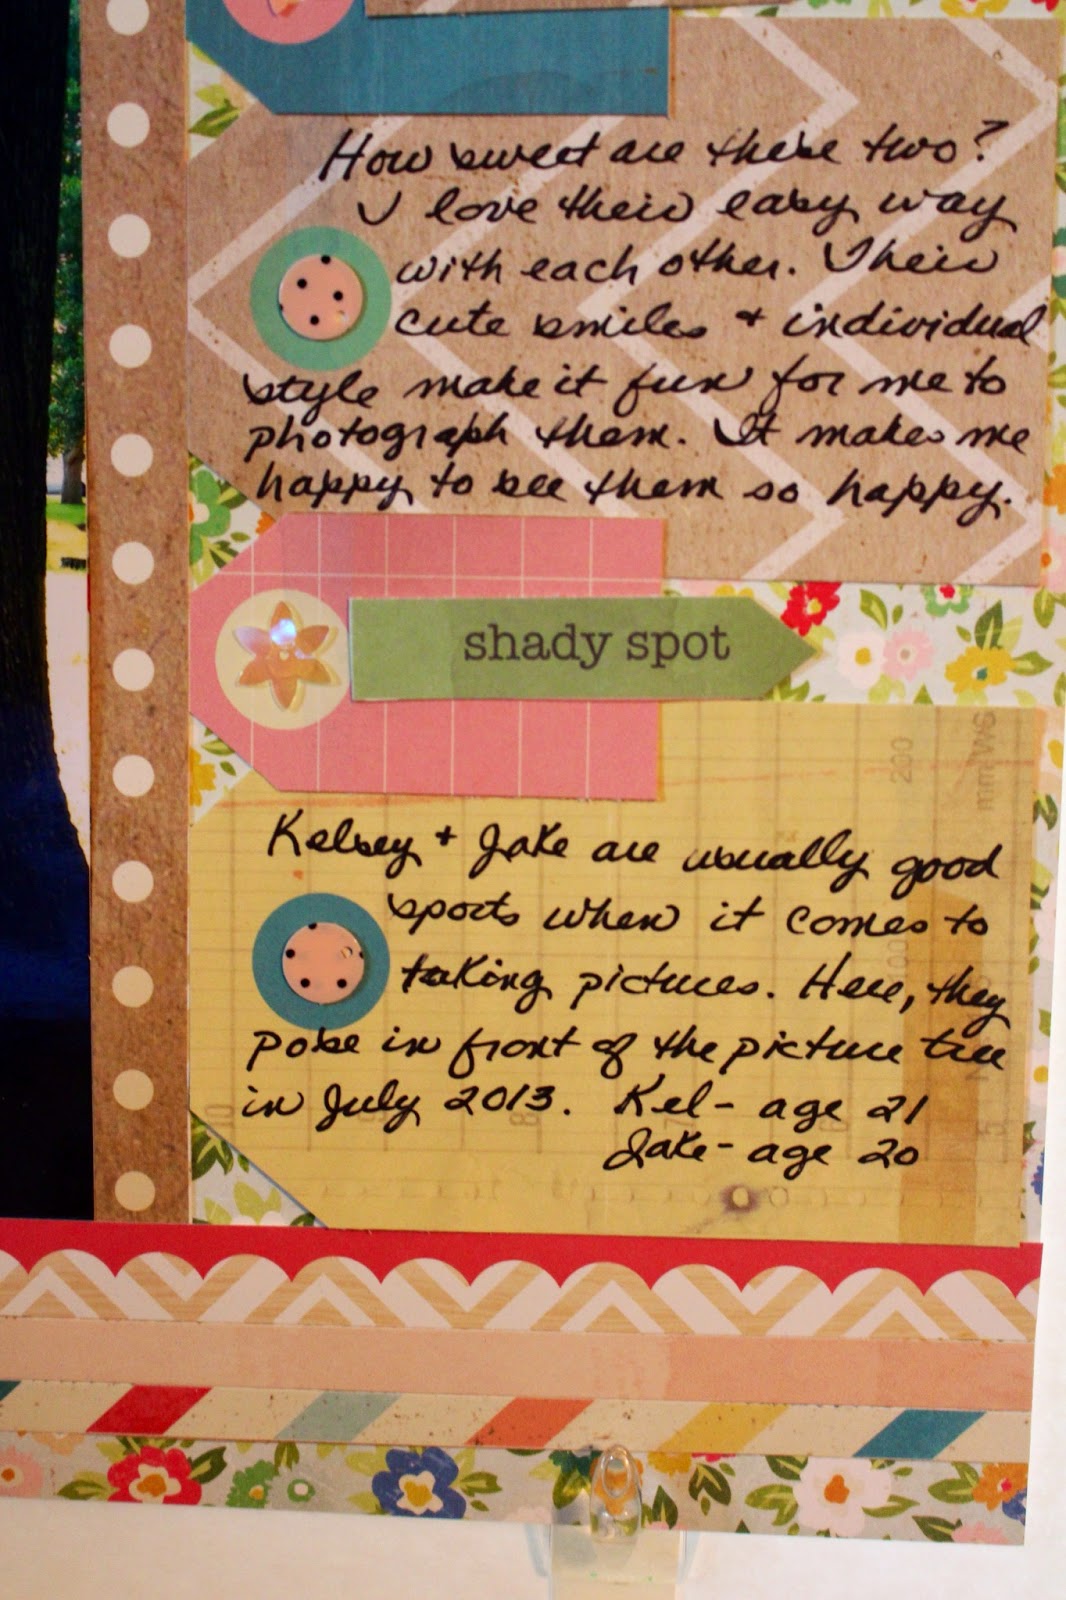 How sweet are these two?
I love their easy way
with each other. Their
cute smiles + individual
style make it fun for me to
photograph them. It makes me
happy to see them so happy.
shady spot
200
mm/WS
Kelsey + Jake are usually good
sports when it comes to
taking pictures. Here, they
pose in front of the picture tree
in July 2013. Kel - age 21
Jake - age 20